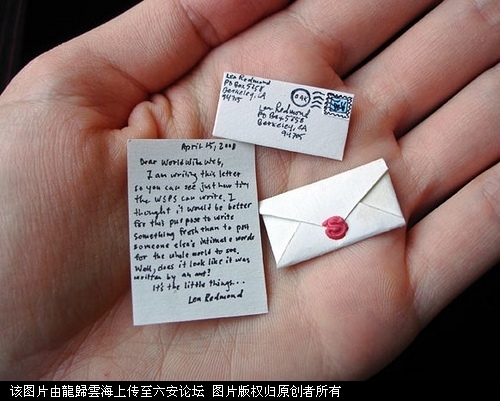 Lea Redmond
PO Box
Berkeley, CA
94705
Lea Redmond
PO Box
Berkeley, CA
94705
April 15, 2008
Dear World Wide Web,
I am writing this letter
so you can see just how tiny
the WSPS can write. I
thought it would be better
for this purpose to write
something fresh than to post
someone else's intimate words
for the whole world to see.
Well, does it look like it was
written by an ant?
It's the little things...
Lea Redmond
S
该图片由龍歸雲海上传至六安论坛 图片版权归原创者所有